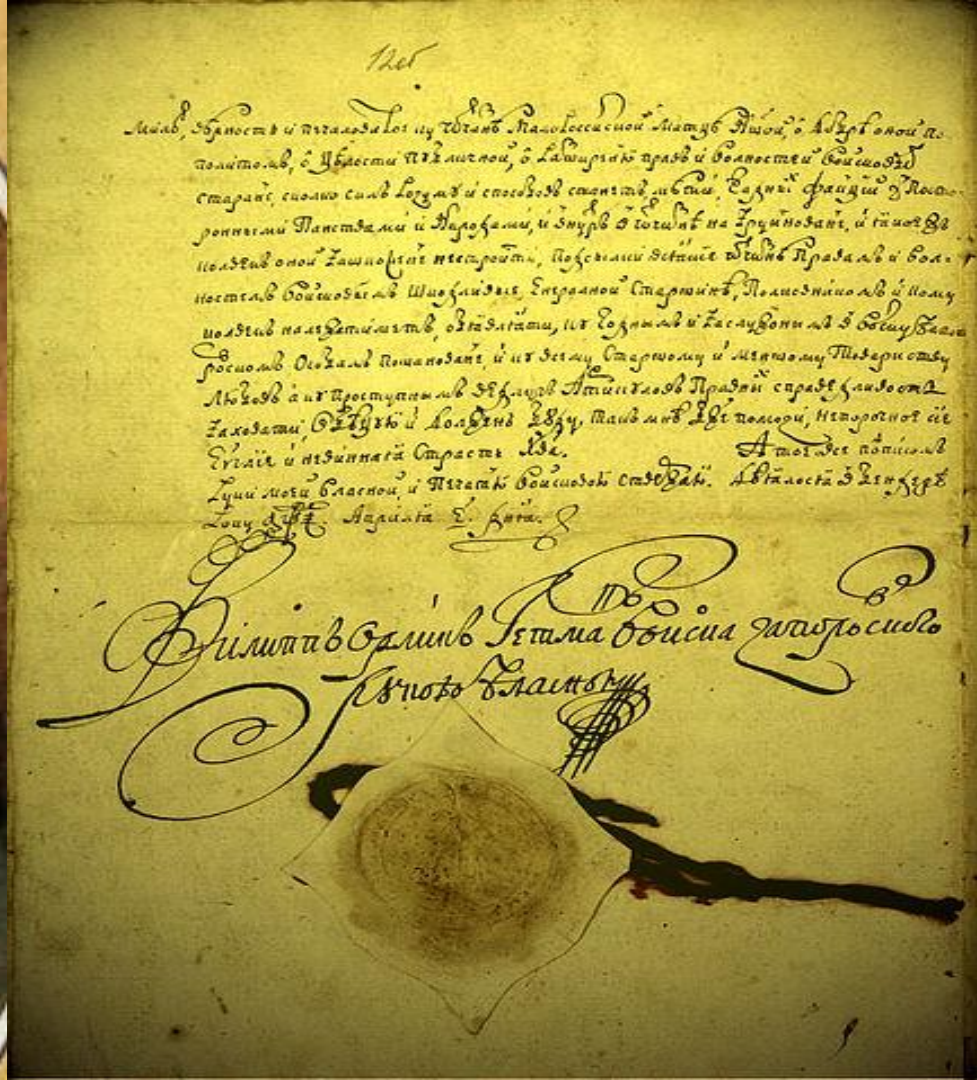 12об
милъ, вѣрность и печаловитое ку ѿчизнѣ Малороссийской Матцѣ Нашой, о добрѣ оной по
политомъ, о Цѣлости Публичной, о Разширеню правъ и волностей войсковыхъ
старане, сколко силъ Розуму и способовъ станетъ мѣти, Жадныхъ факций з Посто
ронними Панствами и Народами, и внутръ в ѿчизнѣ на Зруйноване, и якое
колвекъ оной Зашкожене нестроити, Подсылки всякие ѿчизнѣ Правамъ и вол
ностямъ войсковымъ Шкодливые, Енералной Старшинѣ, Полковникомъ и кому
колвекъ належатиметъ, обявляти, ку Годнымъ и Заслужонымъ в Войску Запо
розкомъ Особамъ пошановане, и ку всему Старшому и меншому Товариству
Любовъ а ку Проступнымъ ведлугъ Артикуловъ Правныхъ справедливость
Заховати, Обѣцую и долженъ буду, такъ мнѣ Бже помози, непорочное сие
Еѵглие и невинная Страсть Хва. А тое все подписомъ
Руки моеи власной, и Печатю войсковою ствержаю. Дѣялося в Бендерѣ
Року ҂аѱі. Априля е. дня.
Филиппъ Орликъ Гетманъ Войска Запорозского
рукою власною